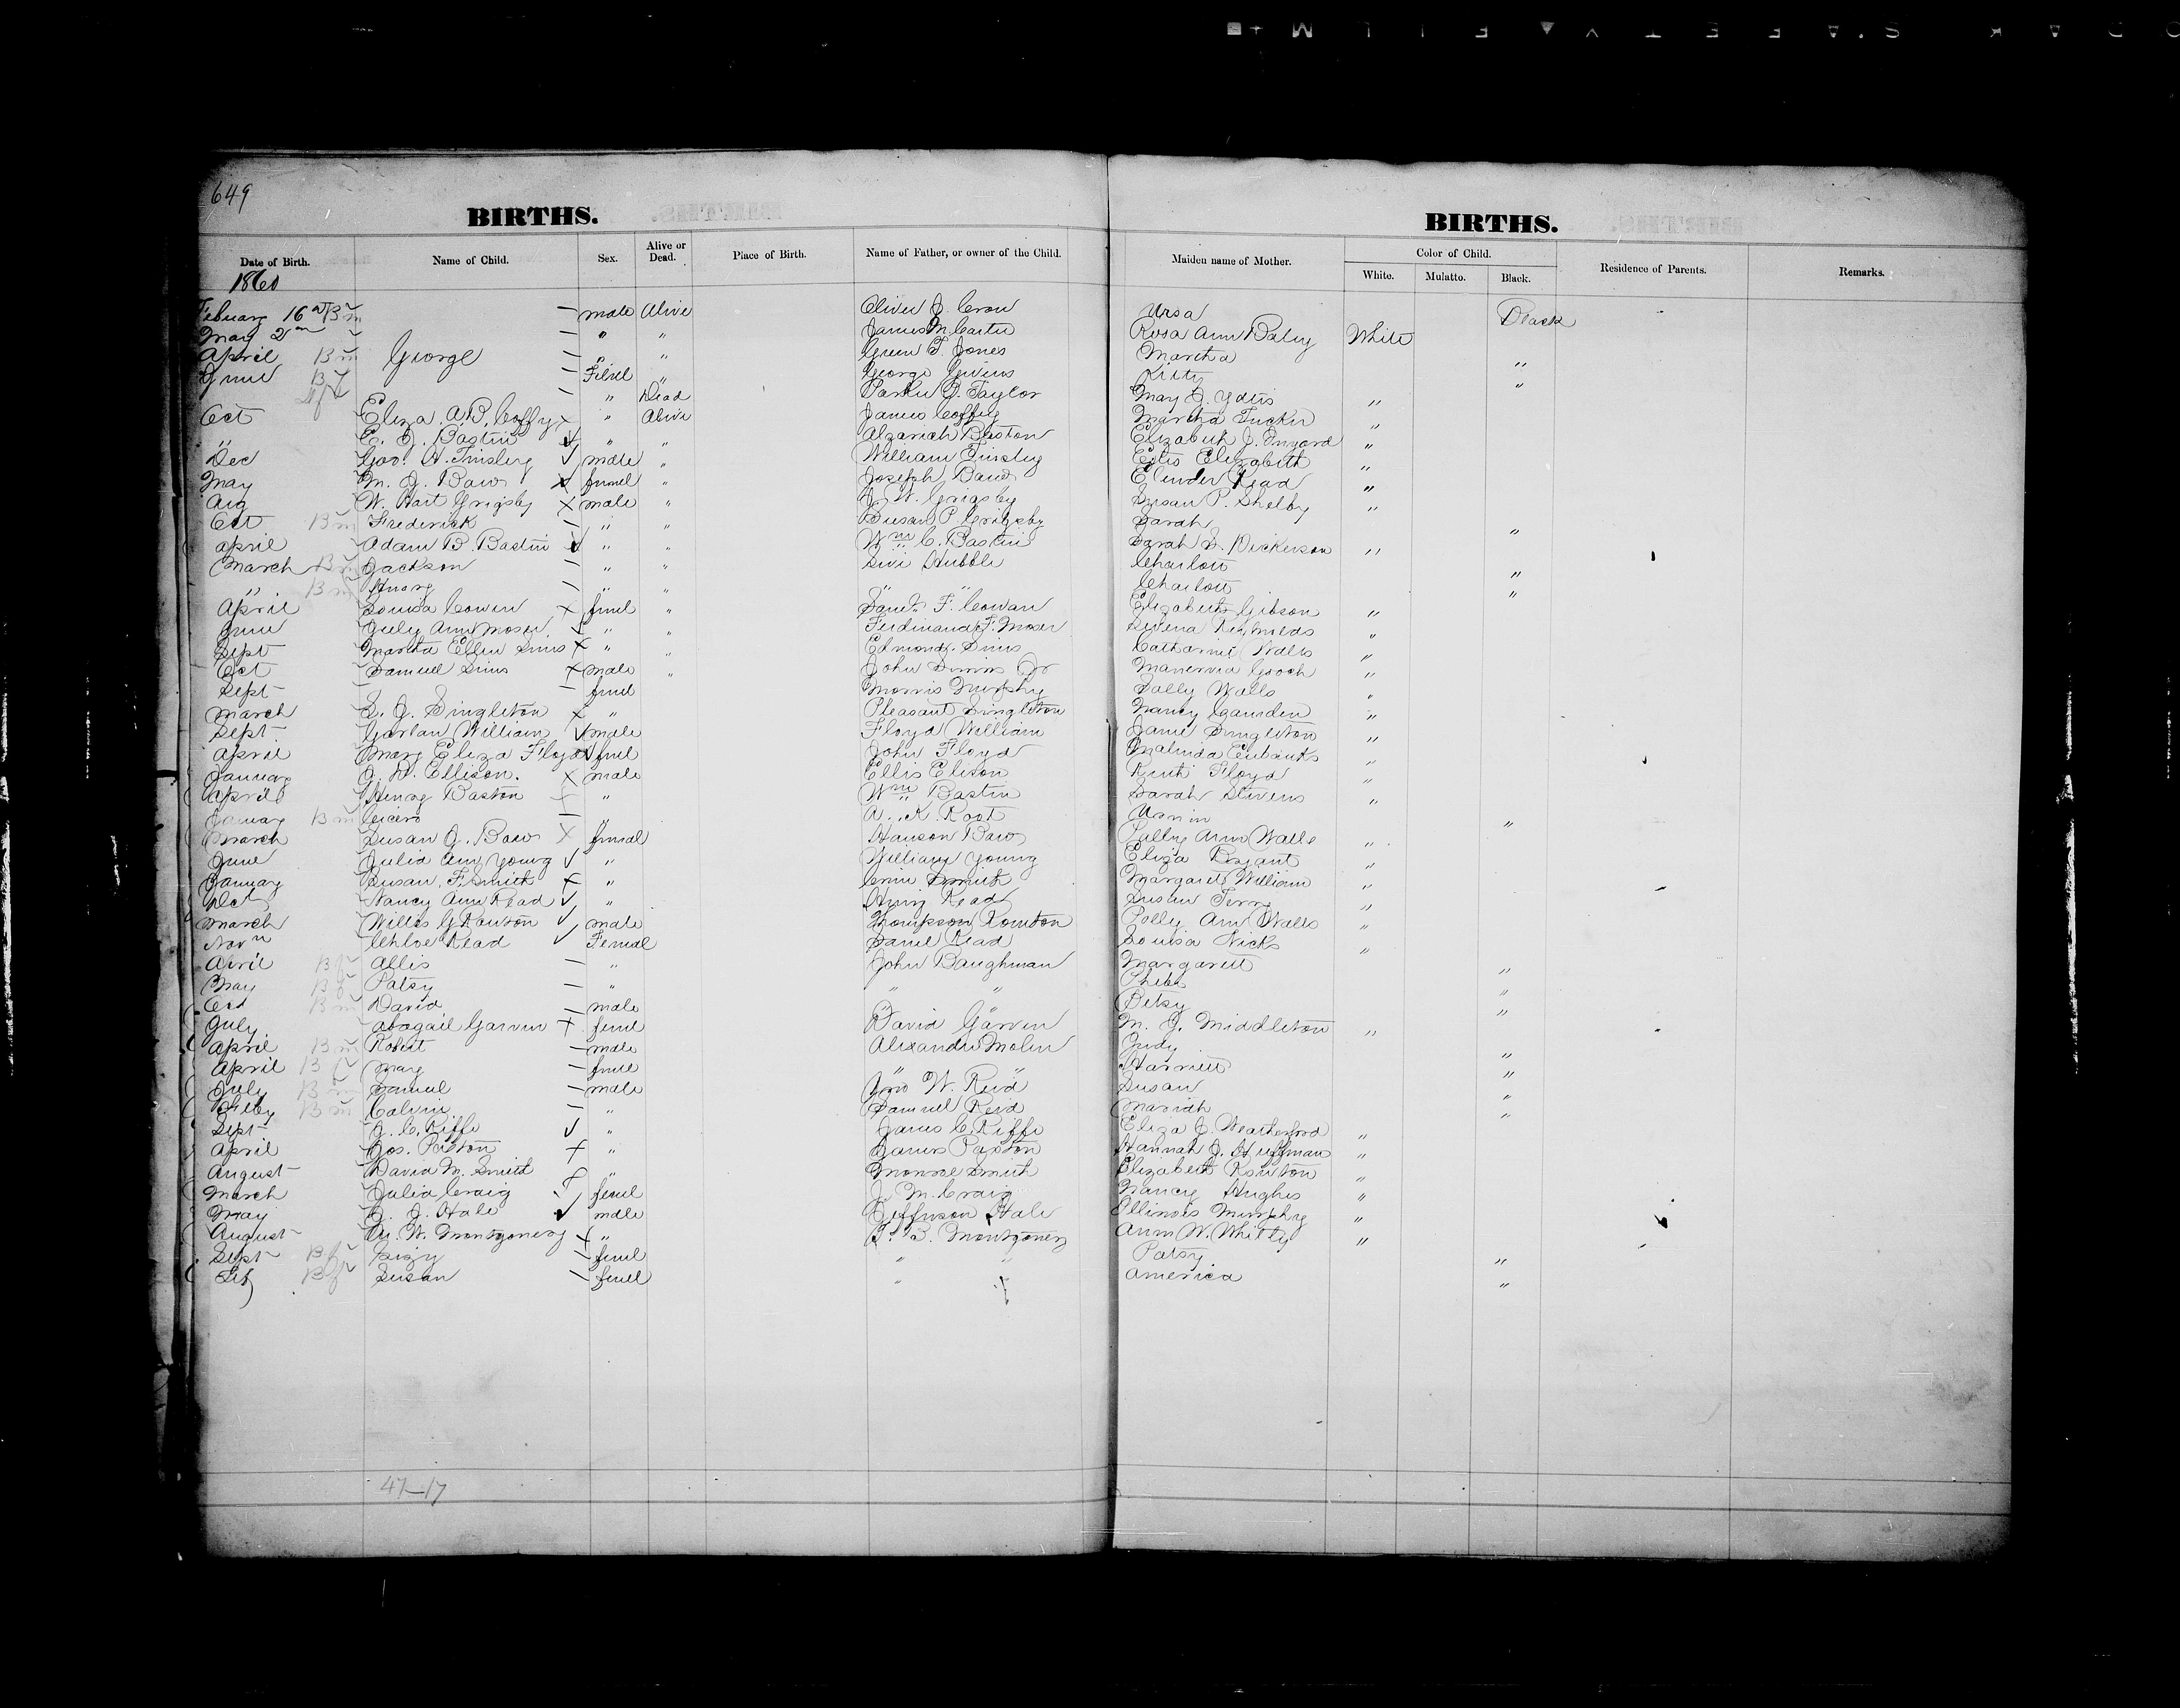 649
BIRTHS. BIRTHS.
Date of Birth. Name of Child. Sex. Alive or Dead. Place of Birth. Name of Father, or owner of the Child. Maiden name of Mother. Color of Child. White. Mulatto. Black. Residence of Parents. Remarks.
1860
February 16 Bm — male Alive Oliver J. Crow Ursa Black
May 2 — " " James M. Carter Rosa Ann Baley White
April Bm George — " " Green T. Jones Martha "
June Bf — Femel " George Givens Kitty "
— " Dead Parker J. Taylor May J. Yates "
Oct Eliza. A. B. Coffy × " Alive James Coffey Martha Tucker "
" E. J. Bastin ✓ " " Baston Elizabeth J. "
Dec Geo. H. Tinsley ✓ male " William Tinsley Estis Elizabeth "
May M. J. Baw × femel " Joseph Baw Elender Read "
Aug W. Hart Grigsby × male " J. W. Grigsby Susan P. Shelby "
Oct Bm Frederick — " " Susan P. Grigsby Sarah "
April Adam B. Bastin ✓ " " Wm C. Bastin Sarah S. Dickerson "
March Bm Jackson — " " Levi Hubble Charlott "
" Bm Henry — " " " " Charlott "
April Louisa Cowen × femel " Saml. F. Cowan Elizabeth Gibson "
June July Ann Moser ✓ " " Ferdinand F. Moser Serena Reynolds "
Sept Martha Ellen Sims × " " Edmond Sims Catharine Walls "
Oct Samuel Sims × male " John Sims Jr Manervia Gooch "
Sept — femel Morris Murphy Sally Walls "
March S. J. Singleton × " Pleasant Singleton Nancy Gamden "
Sept Garlan William ✓ male Floyd William Jane Singleton "
April Mary Eliza Floyd ✓ femel John Floyd Malinda Eubanks "
January J. W. Ellison. × male Ellis Elison Ruth Floyd "
April Henry Baston " Wm Bastin Sarah Stivens "
January Bm Cicero — " A. K. Root "
March Susan J. Baw × femal Hanson Baw Sallie Ann Walls "
June Julia Ann Young ✓ " William Young Eliza Bryant "
January Susan. F. Smith × " Smith Margaret William "
Oct Nancy Ann Read ✓ " Read Susan "
March Willis G Routon ✓ male Thompson Rowton Polly Ann Walls "
Novm Chloe Read ✓ Femal Daniel Read Louisa Hicks "
April Bf Allis — " John Baughman Margarett "
May Bf Patsy — " " " Phebe "
Oct Bm David — male Betsy "
July Abagail Garvin + femel David Garvin M. J. Middleton "
April Bm Robert — male Alexander Molen Judy "
April Bf Mary — femel " " Harriett "
July Bm Samuel — male Jno W. Reid Susan "
Feby Bm Calvin — " Samuel Reid Mariah "
Sept J. C. Riffe ✓ " James C. Riffe Eliza J. Weatherford "
April Jos. Paxton + " James Paxton Hannah J. Huffman "
August David M. Smith " Monroe Smith Elizabeth Routon "
March Julia Craig ✓ femel J. M. Craig Nancy Hughes "
May J. J. Hale ✓ male Jefferson Hale Illinois Murphy "
August W. Montgomery + " T. B. Montgomery Ann W. Whitly "
Sept Bf — femel " " Patsy "
Bf Susan — femel " " America "
47—17